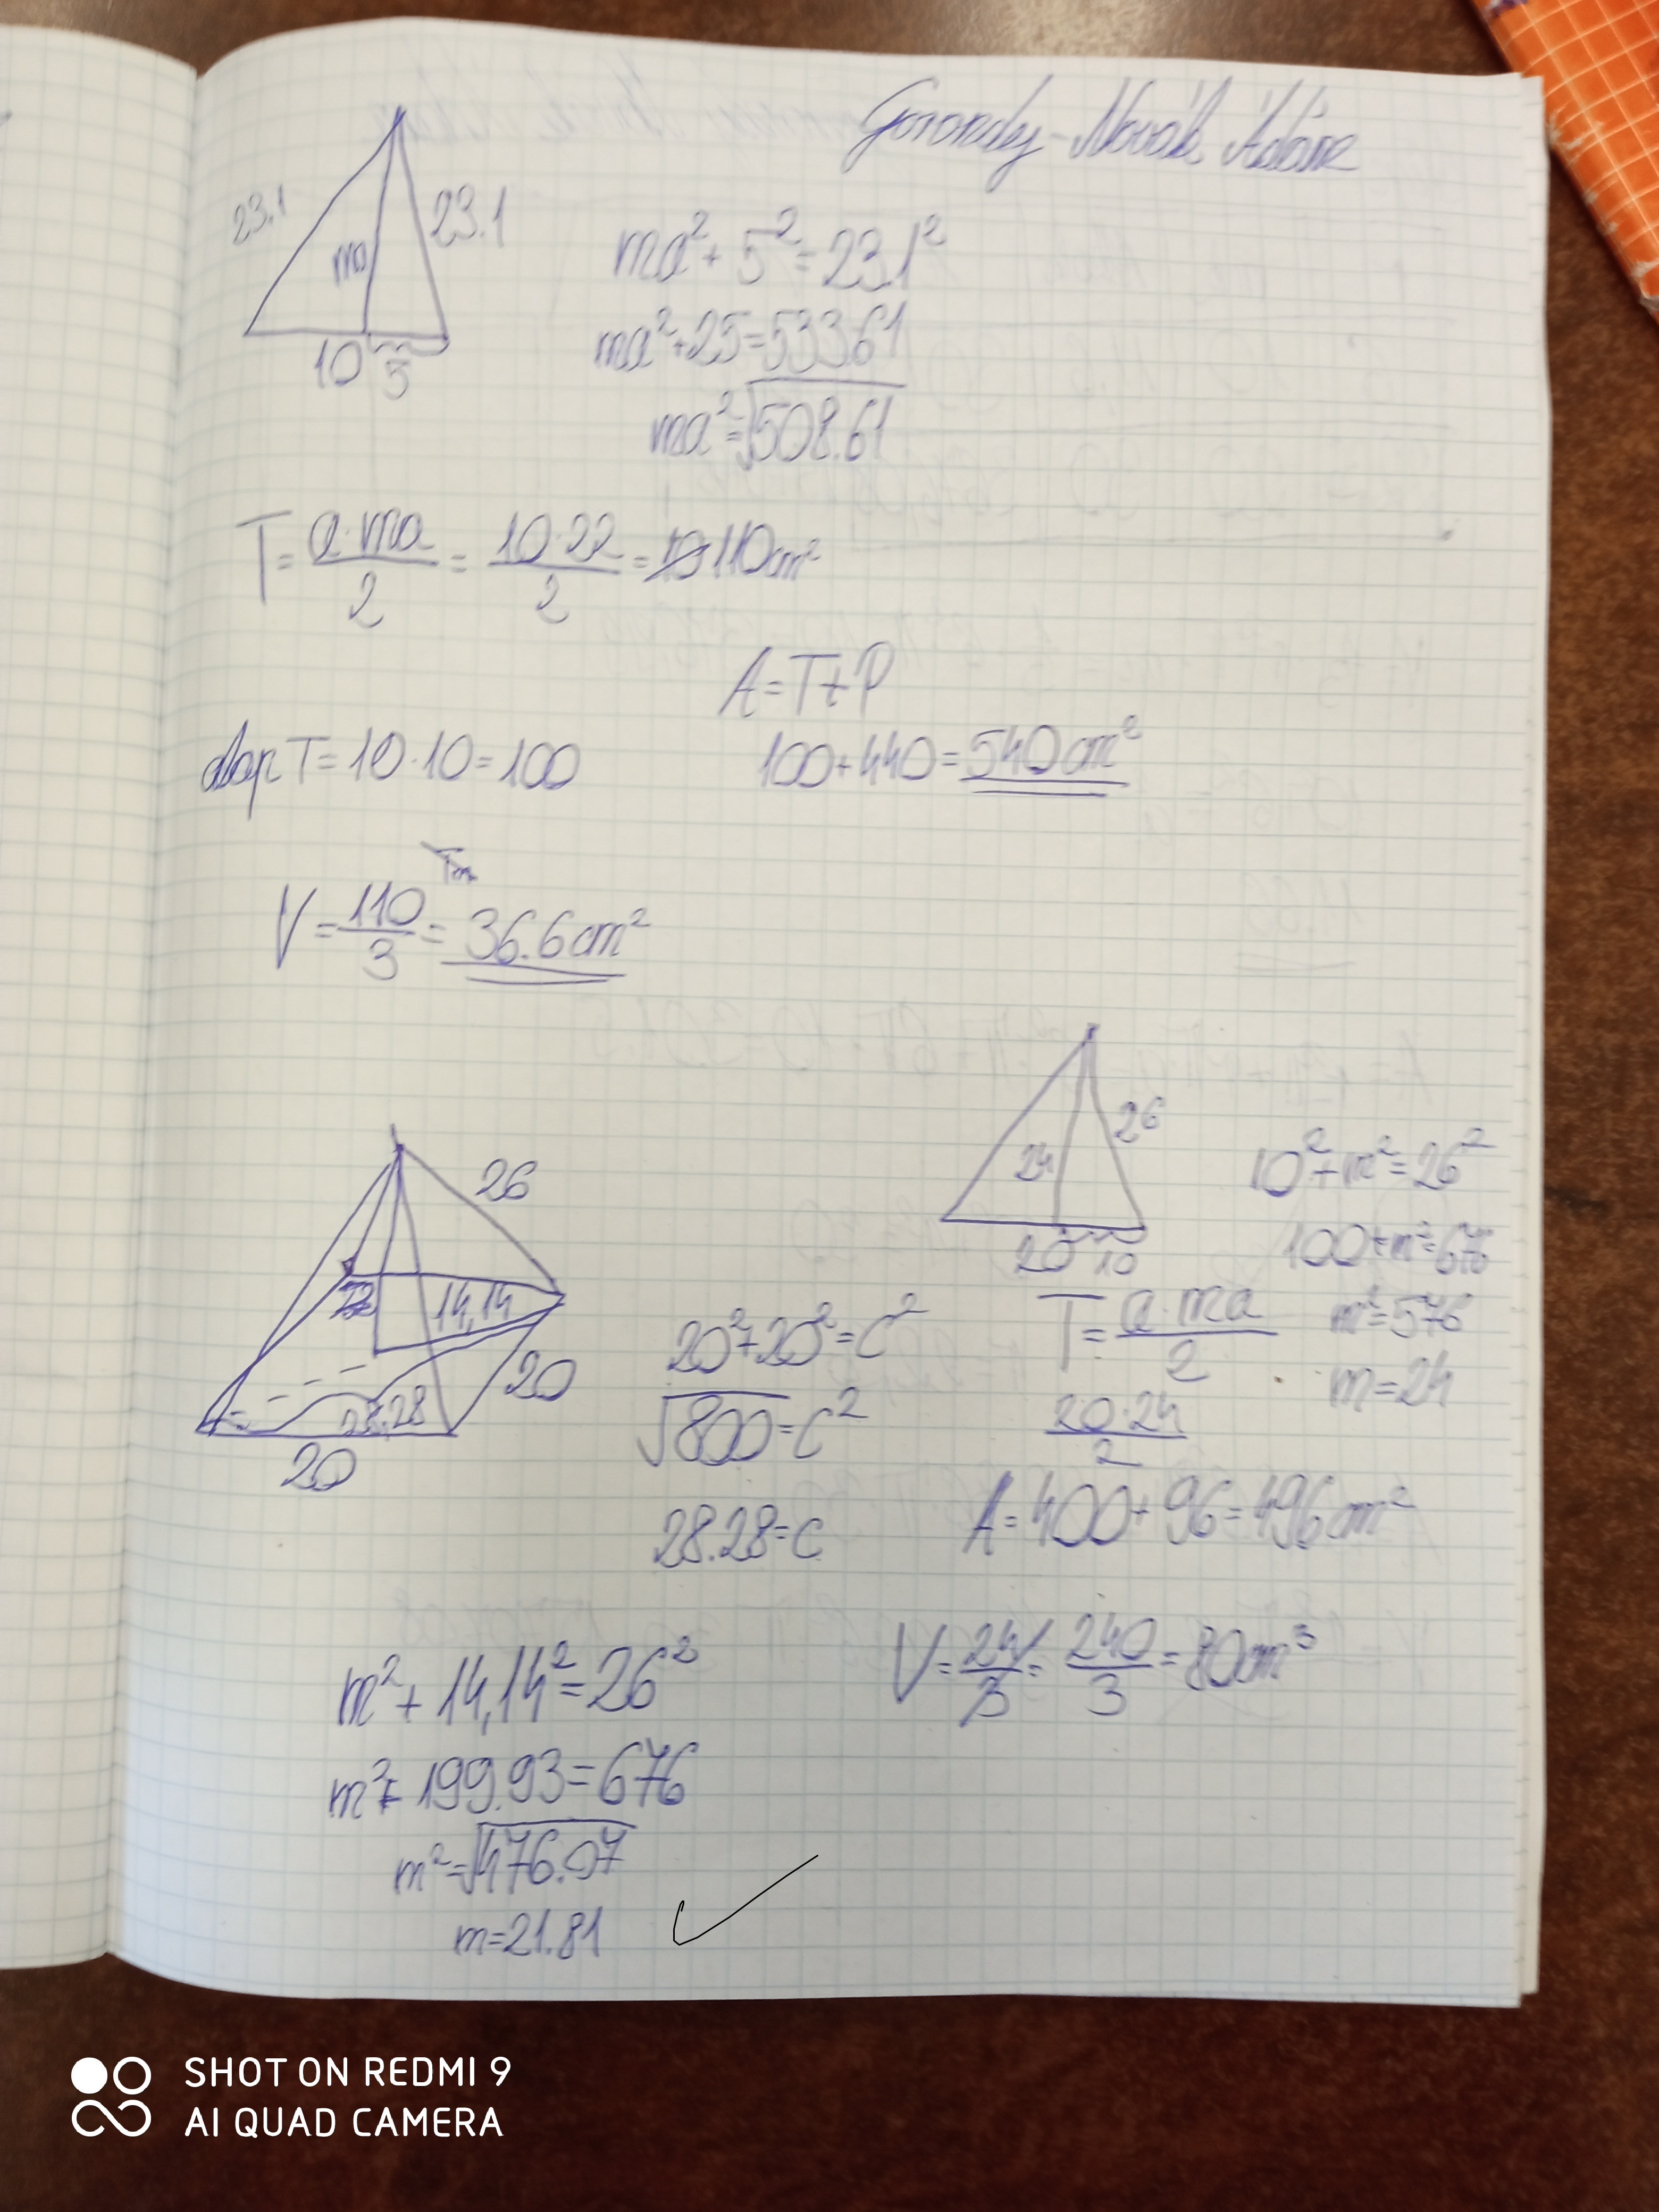 Novák Ádám
23.1
23.1
ma
10 5
ma² + 5² = 23.1²
ma² + 25 = 533.61
ma² = √508.61
T = a·ma/2 = 10·22/2 = 110 cm²
A = T + P
alap T = 10·10 = 100
100 + 440 = 540 cm²
V = 110/3 = 36.6 cm²
26
24
20 10
10² + m² = 26²
100 + m² = 676
m² = 576
m = 24
26
14,14
20
28.28
20
20² + 20² = C²
√800 = C²
28.28 = C
T = a·ma/2
20·24/2
A = 400 + 96 = 496 cm²
V = 24/3 = 240/3 = 80 cm³
m² + 14,14² = 26²
m² + 199.93 = 676
m² = √476.07
m = 21.81
SHOT ON REDMI 9
AI QUAD CAMERA